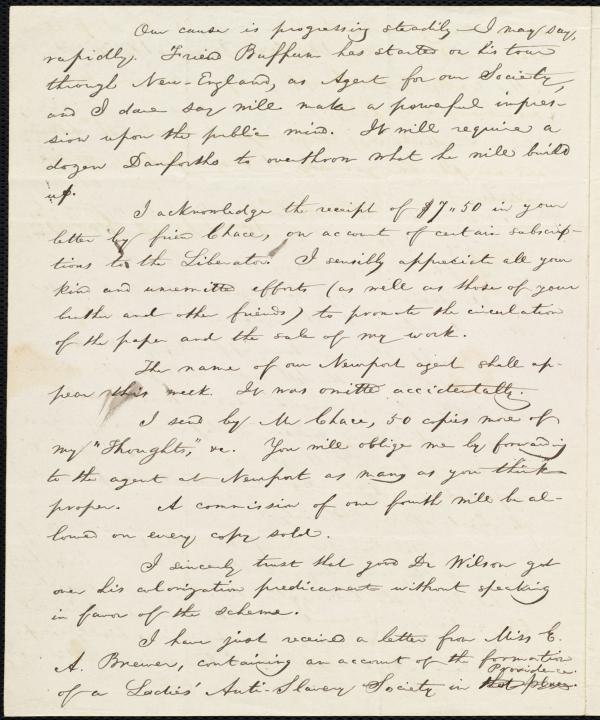 Our cause is progressing steadily—I may say,
rapidly. Friend Buffum has started on his tour
through New-England, as Agent for our Society,
and I dare say will make a powerful impres-
sion upon the public mind. It will require a
dozen Danforths to overthrow what he will build
up.
I acknowledge the receipt of $7.50 in your
letter by friend Chace, on account of certain subscrip-
tions to the Liberator. I sensibly appreciate all your
kind and unremitted efforts (as well as those of your
brother and other friends) to promote the circulation
of the paper and the sale of my work.
The name of our Newport agent shall ap-
pear this week. It was omitted accidentally.
I send by Mr Chace, 50 copies more of
my "Thoughts," &c. You will oblige me by forwarding
to the agent at Newport as many as you think
proper. A commission of one fourth will be al-
lowed on every copy sold.
I sincerely trust that good Dr Wilson got
over his colonization predicament without speaking
in favor of the scheme.
I have just received a letter from Miss E.
A. Brewer, containing an account of the formation
of a Ladies' Anti-Slavery Society in that place. Providence.